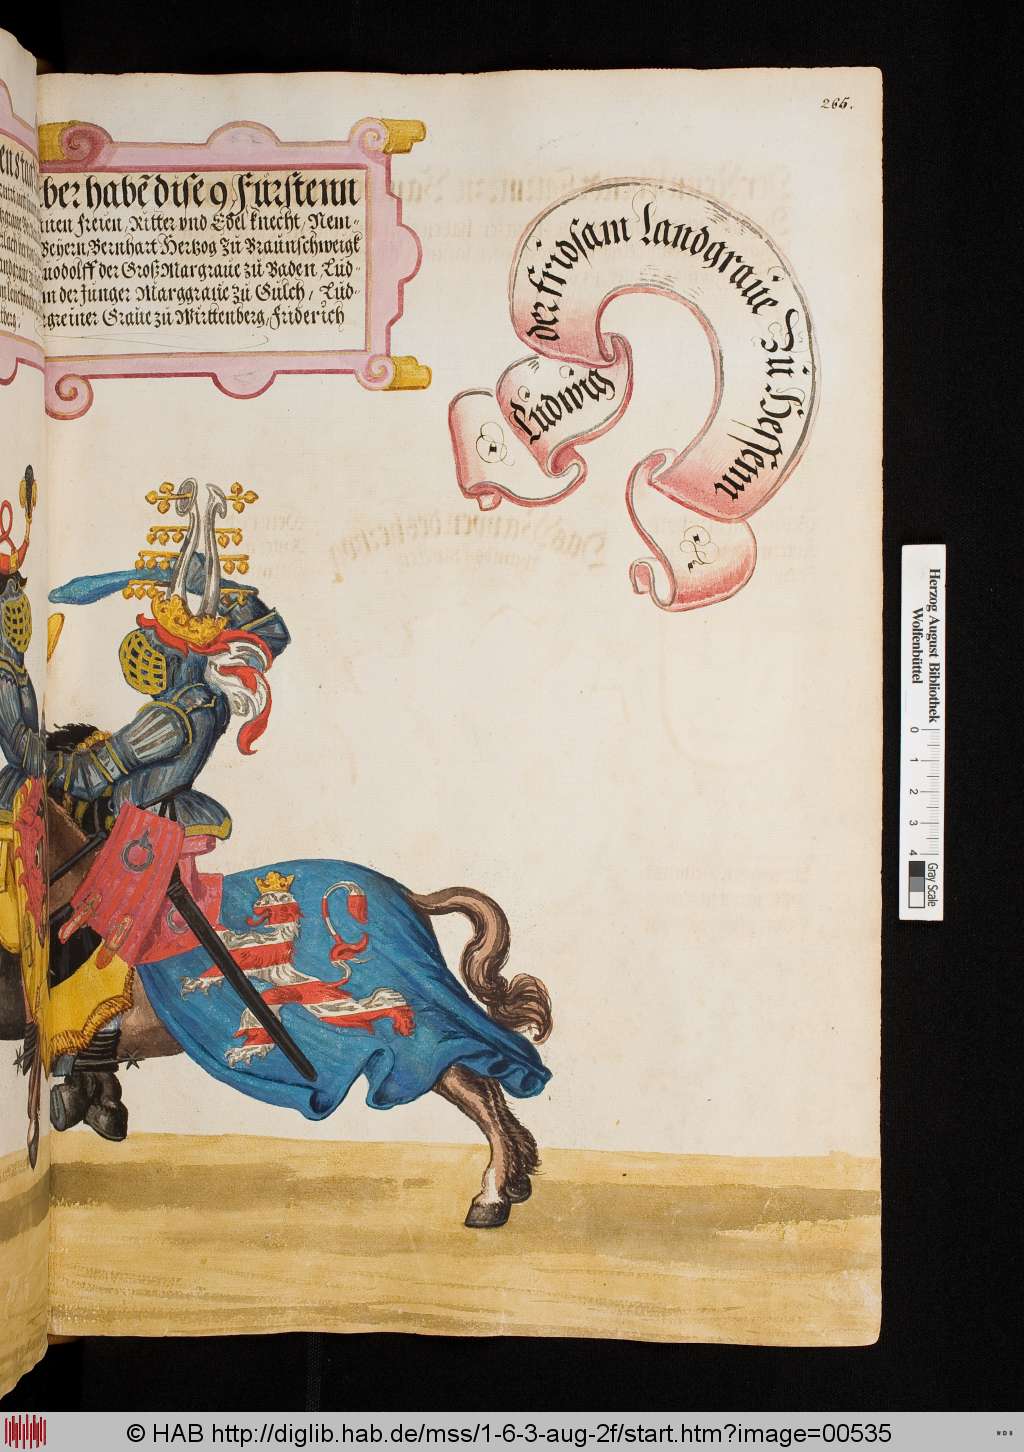 265.
ber habẽ dise 9 Fürstenn
freien / Ritter vnd Edel knecht / Nem-
Beÿern / Bernhart Hertzog zü Braunschweigk
uodolff der Groß Margraue zü Baden / Lüd-
der Jünger Marggraue zü Gülch / Lüd-
Graue zü Wirttenberg / Friderich
Lüdwig
der fridsam Landgraue zü Hessenn
Herzog August Bibliothek
Wolfenbüttel
0 1 2 3 4
Gray Scale
© HAB http://diglib.hab.de/mss/1-6-3-aug-2f/start.htm?image=00535